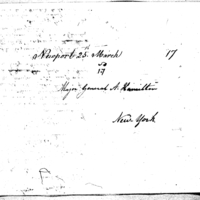 Newport 25. March 17
17
Major General A. Hamilton
New York